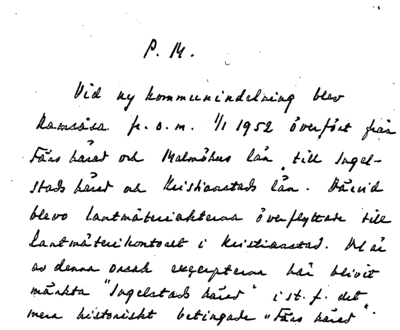 P. M.
Vid ny kommunindelning blev
Ramsåsa fr. o. m. 1/1 1952 överfört från
Färs härad och Malmöhus län till Ingel-
stads härad och Kristianstads län. Därvid
blevo lantmäteriakterna överflyttade till
Lantmäterikontoret i Kristianstad. Det är
av denna orsak excerpterna här blivit
märkta "Ingelstads härad" i st. f. det
mera historiskt betingade "Färs härad".